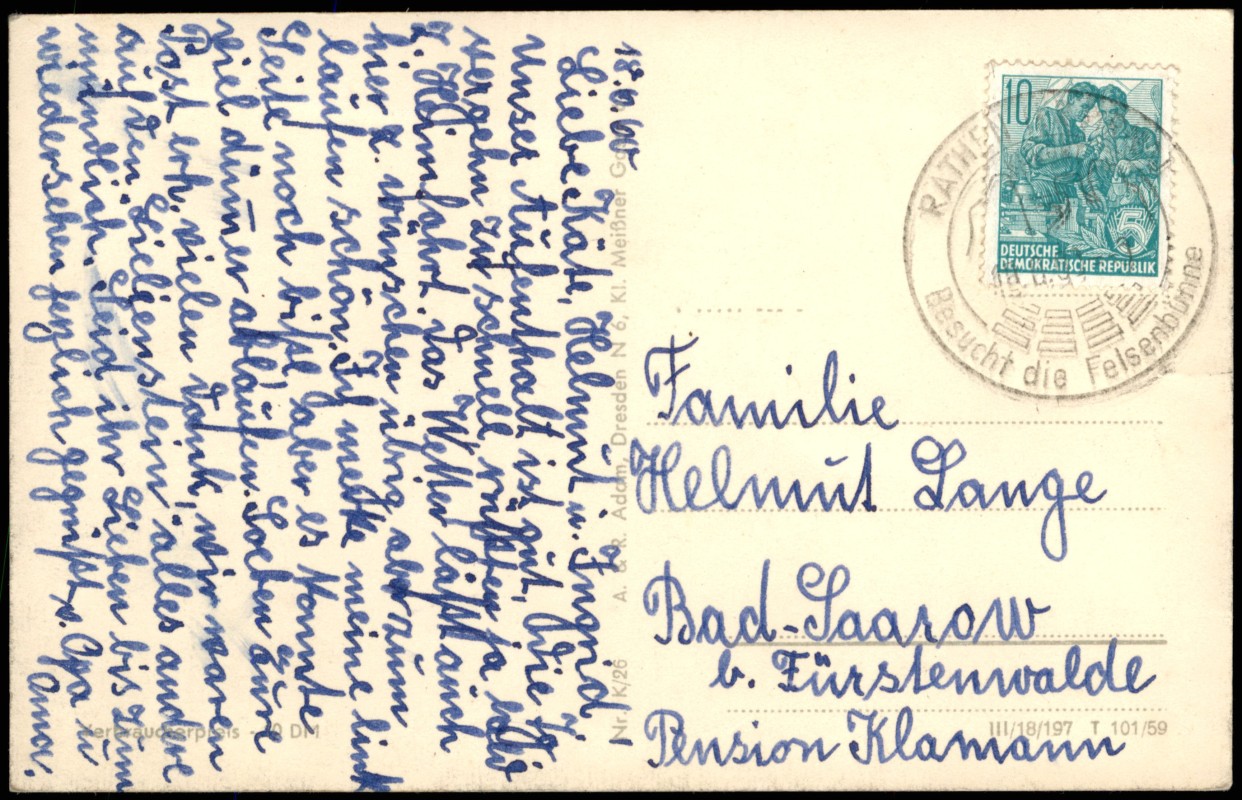 18.6.60
Liebe Käte, Helmut u. Ingrid!
Unser Aufenthalt ist gut, die
vergehn zu schnell, rüsten ja bald
z. Heimfahrt. Das Wetter läßt auch
hier z. wünschen übrig, abräum
laufen schön. Ich merke meine link
Seite noch bißl, aber es konnte
viel dümmer ablaufen. Soeben Eure
Post erh. vielen Dank, wir waren
auf den Lilienstein, alles andre
mündlich. Seid ihr Lieben bis zum
wiedersehen herzlich gegrüßt v. Opa u
Oma.
Nr. K/26 A. & R. Adam, Dresden N 6, Kl. Meißner
Verbraucherpreis
10
5
DEUTSCHE
DEMOKRATISCHE REPUBLIK
RATHEN
Besucht die Felsenbühne
Familie
Helmut Lange
Bad-Saarow
b. Fürstenwalde
Pension Klamann
III/18/197 T 101/59